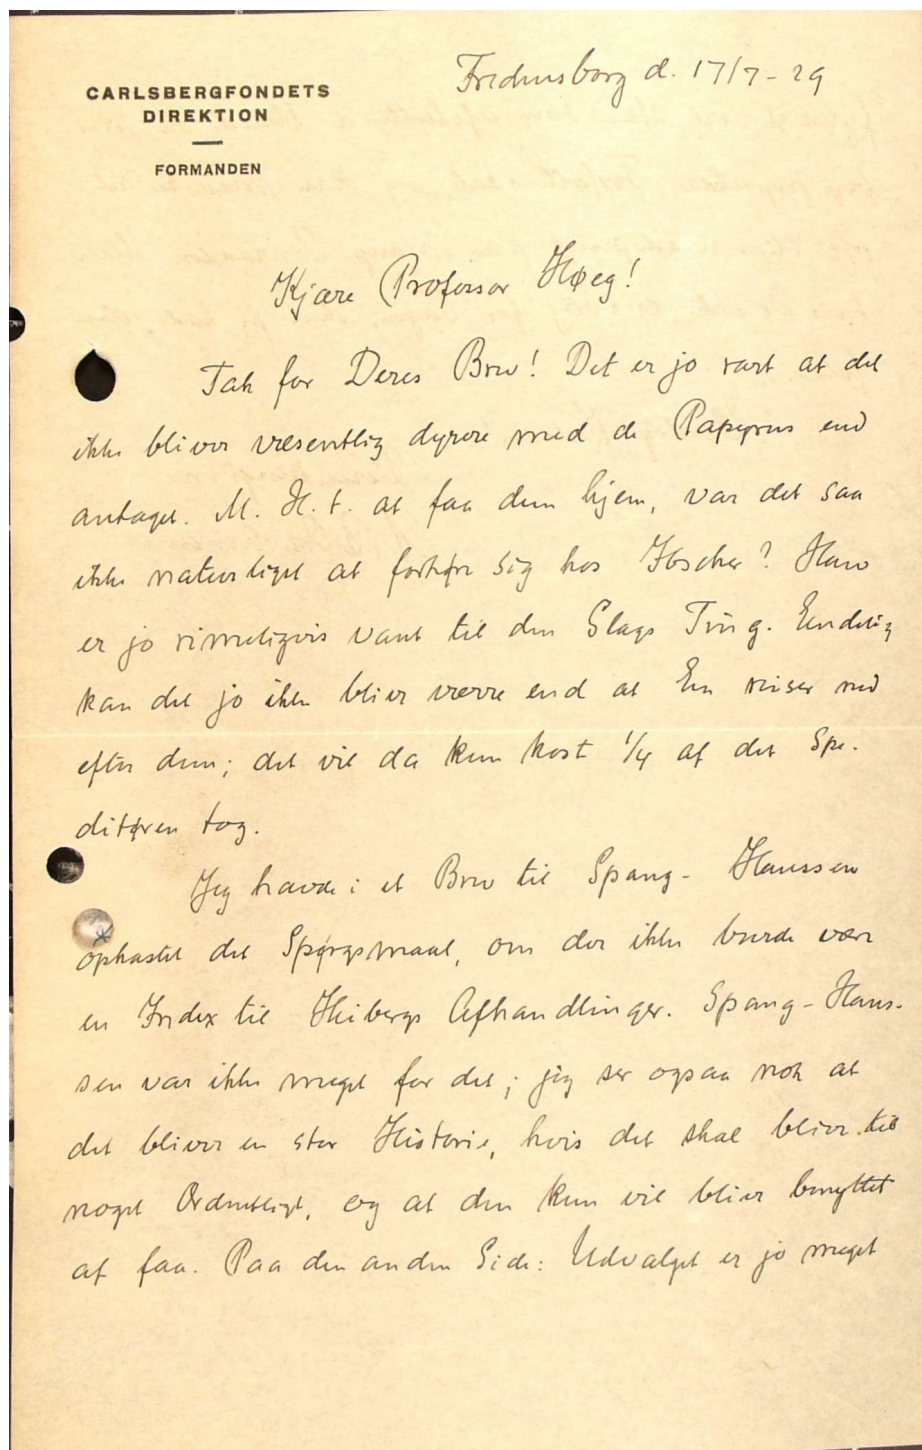 CARLSBERGFONDETS
DIREKTION
FORMANDEN
Fredensborg d. 17/7-29
Kjære Professor Høeg!
Tak for Deres Brev! Det er jo rart at det
ikke bliver væsentlig dyrere med de Papyrus end
antaget. M. H. t. at faa dem hjem, var det saa
ikke naturligst at forhøre sig hos Ibscher? Han
er jo rimeligvis vant til den Slags Ting. Endelig
kan det jo ikke blive værre end at En reiser ned
efter dem; det vil da kun koste 1/4 af det Spe-
ditøren tog.
Jeg havde i et Brev til Spang-Hanssen
opkastet det Spørgsmaal, om der ikke burde være
en Index til Heibergs Afhandlinger. Spang-Hans-
sen var ikke meget for det; jeg ser ogsaa nok at
det bliver en stor Historie, hvis det skal blive til
noget Ordentligt, og at den kun vil blive benyttet
af faa. Paa den anden Side: Udvalget er jo meget